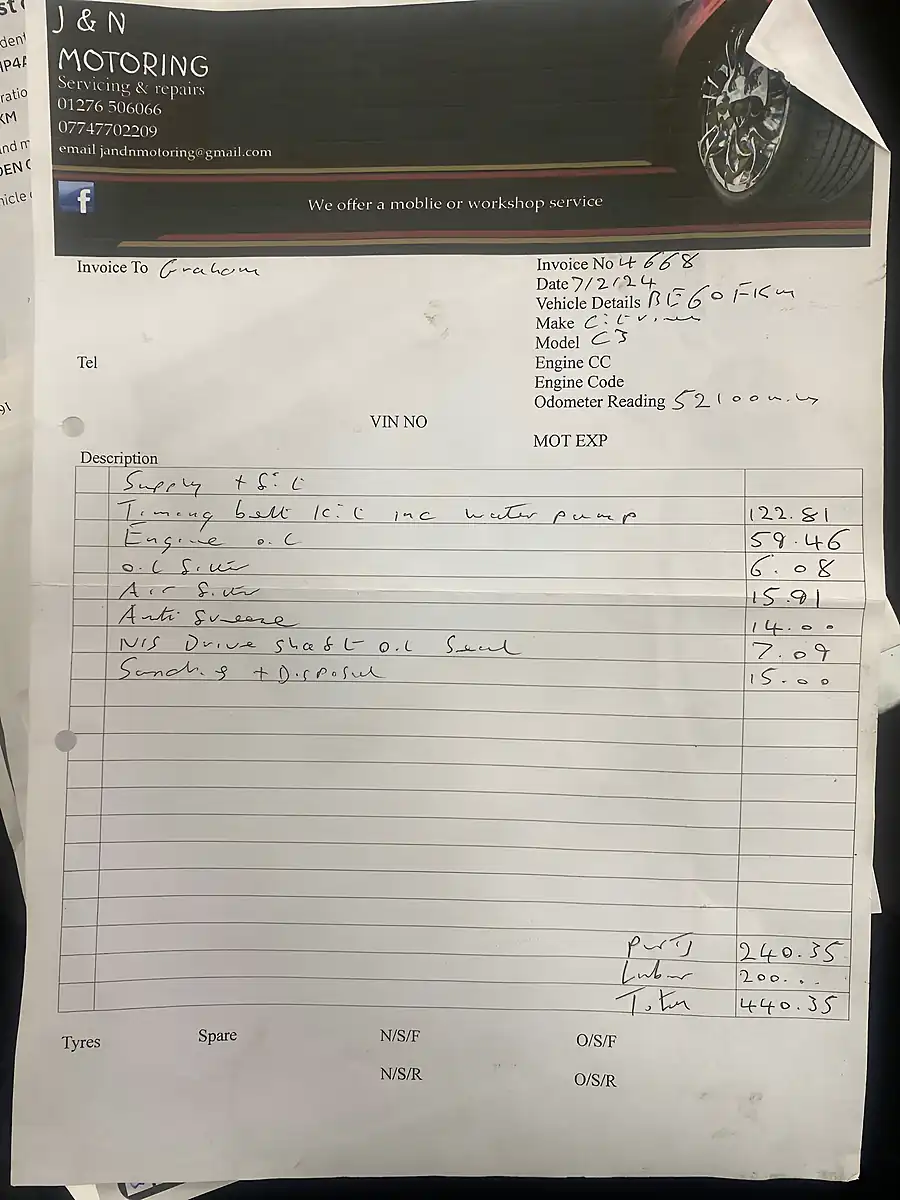 J & N
MOTORING
Servicing & repairs
01276 506066
07747702209
email jandnmotoring@gmail.com
f
We offer a moblie or workshop service
Invoice To Graham
Invoice No 4668
Date 7/2/24
Vehicle Details BE60 FKM
Make Citroen
Model C3
Tel
Engine CC
Engine Code
Odometer Reading 52100 miles
VIN NO
MOT EXP
Description
Supply + fit
Timing belt kit inc water pump 122.81
Engine oil 59.46
oil filter 6.08
Air filter 15.91
Anti freeze 14.00
N/S Drive shaft oil Seal 7.09
Sundries + Disposal 15.00
Parts 240.35
Labour 200...
Total 440.35
Tyres Spare N/S/F O/S/F
N/S/R O/S/R